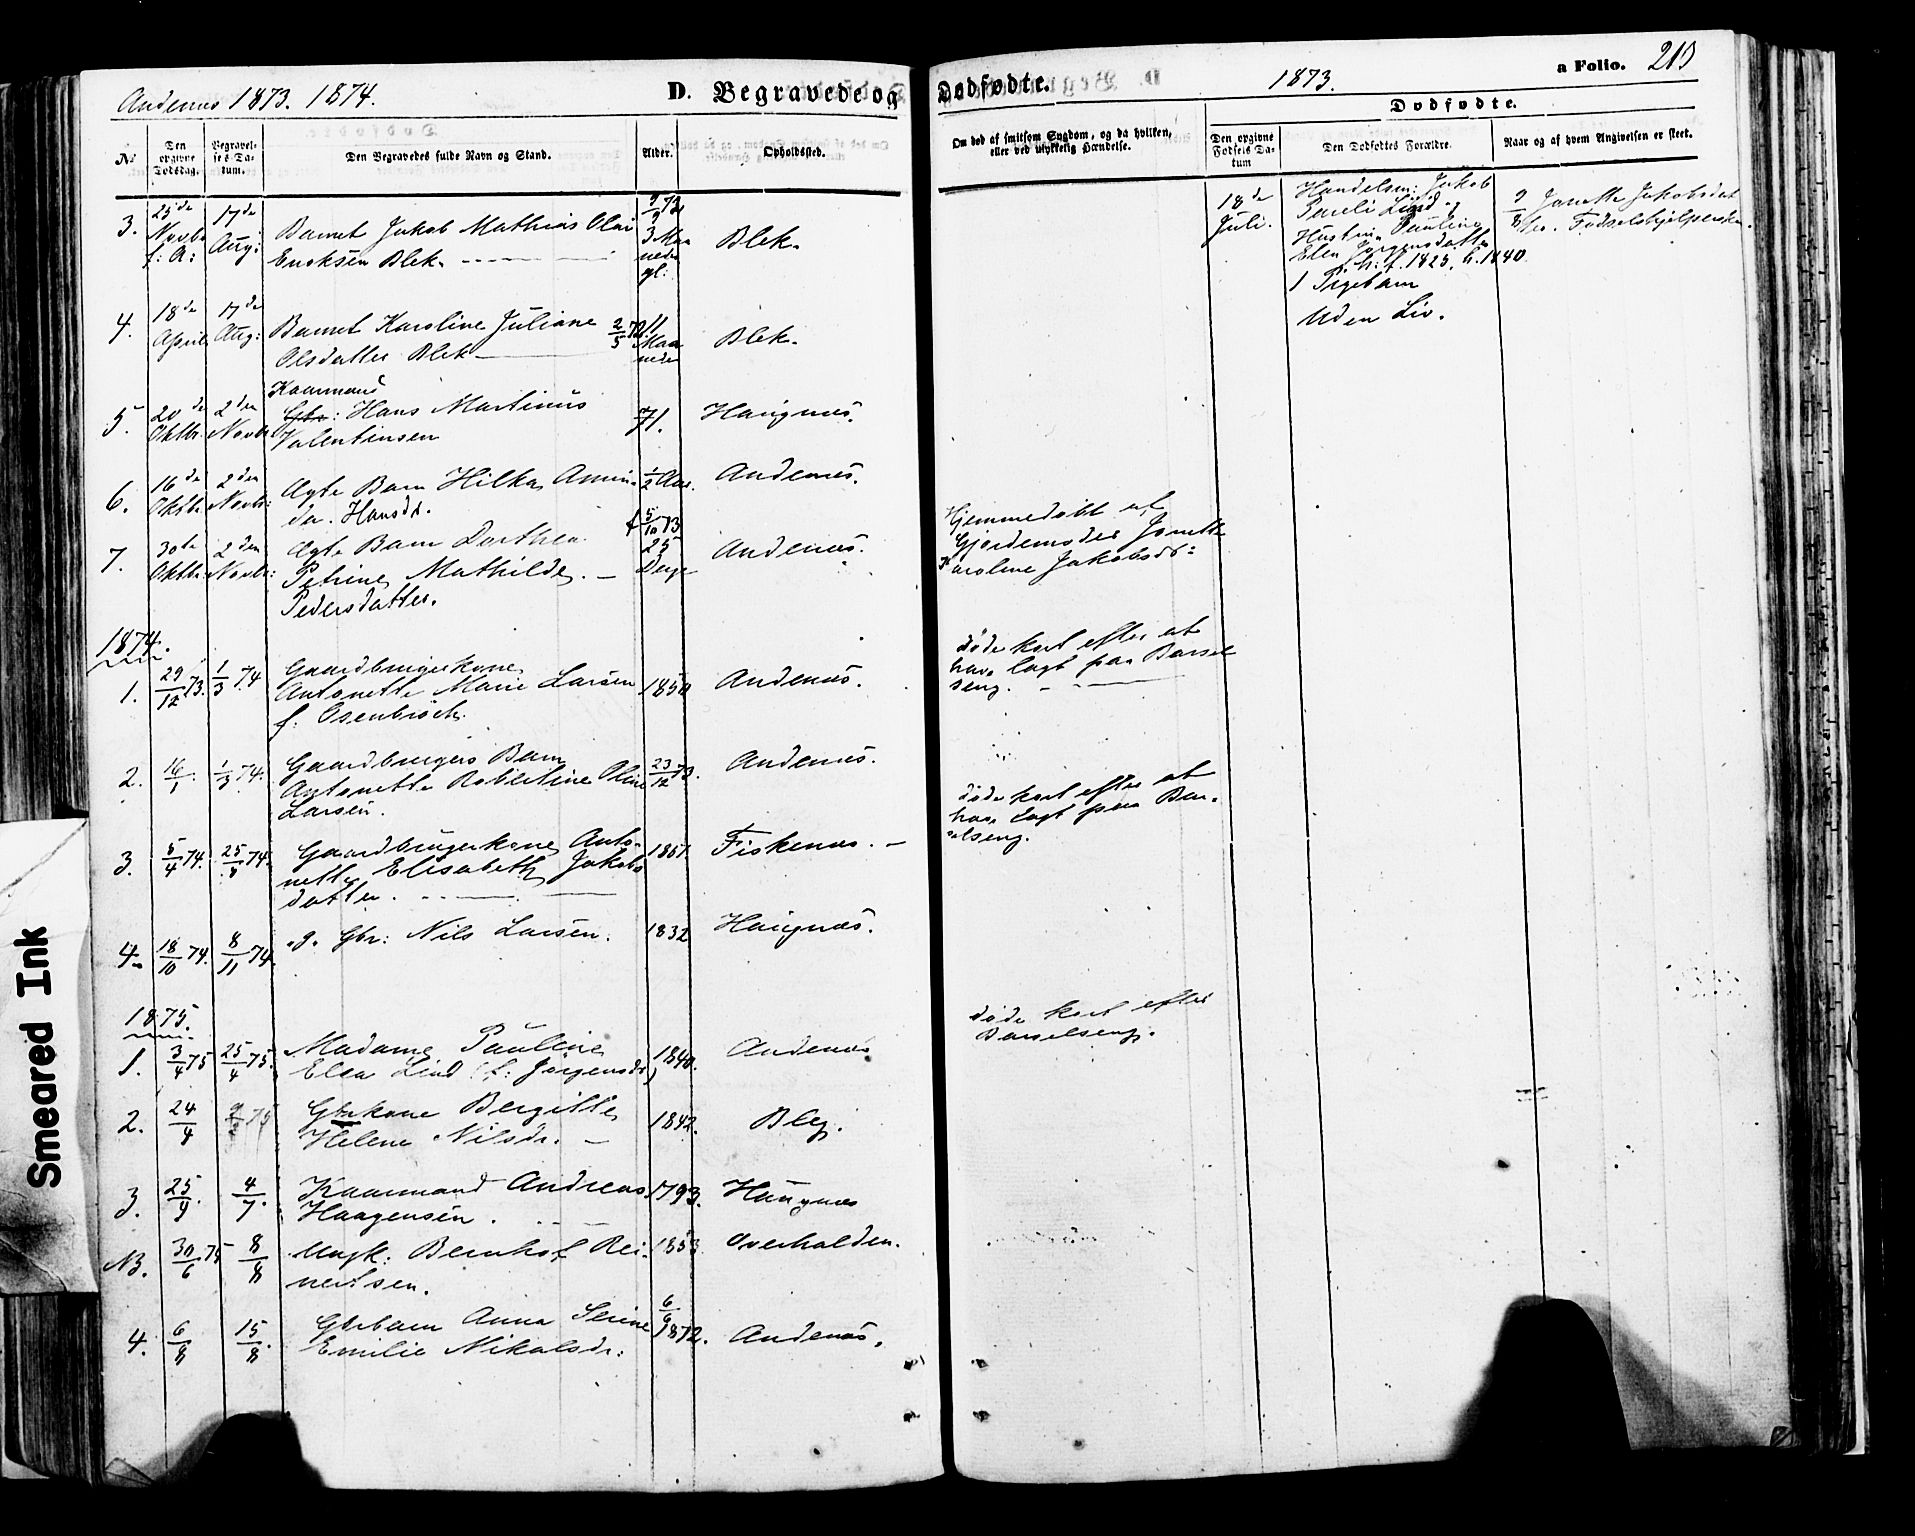 Andenæs 1873. 1874.
D. Begravede og Dødfødte.
1873.
a Folio. 210
No
Den opgivne Dødsdag.
Begravelses Datum.
Den Begravedes fulde Navn og Stand.
Alder.
Opholdssted.
Om død af smitsom Sygdom, og da hvilken, eller ved ulykkelig Hændelse.
Dødfødte.
Den opgivne Fødsels Datum
Den Dødfødtes Forældre.
Naar og af hvem Angivelsen er skeet.
3. 25de Novbr f: A: 17de Aug: Barnet Jakob Mathias Olai
Enoksen Blek. 3 Maaneder gl: Blek.
18de Juli. Handelsm: Jakob
Pareli Lind og
Hustru Pauline
Elen Jørgensdatter
f. 1825. h. 1840.
1 Pigebarn
Uden Liv.
9/8 Jonette Jakobsdat
Fødselshjelperske.
4. 18de April 17de Aug: Barnet Karoline Juliane 2/5 72
Olsdatter Blek 11 Maaneder Blek.
5. 20de Oktbr. 2den Novbr Kaarmand
Gbr: Hans Martinus
Valentinsen 71. Haugnæs.
6. 16de Oktbr 2den Novbr: Ægte Barn Hilka Amin-
da. Hansdr. 1/2 Aar. Andenæs.
7. 30te Oktbr 2den Novbr: Ægte Barn Dorthea
Petrine Mathilde
Pedersdatter. f 5/10 73 25 Dage Andenæs.
Hjemmedøbt af
Gjordemoder Jonette
Karoline Jakobsdr:
1874.
1. 29/12 73. 1/3 74 Gaardbrugerkone
Antonette Marie Larsen
f. Osenbroch. 1850 Andenæs.
døde kort efter at
have lagt paa Barsel
seng.
2. 16/1. 1/3 74. Gaardbrugers Barn
Antonette Robertine Oline
Larsen. 23/12 73. Andenæs.
3. 5/4 74. 25/5 74. Gaardbrugerkone Anto-
nette Elisabeth Jakobs
datter. 1851. Fiskenæs.
døde kort efter at
have lagt paa Bar-
selseng.
4. 18/10 74. 8/11 74. g. Gbr: Nils Larsen. 1832 Haugnæs.
1875.
1. 3/4 75 25/4 75. Madame Pauline
Elea Lind (f: Jørgensdr) 1840. Andenæs
døde kort efter
Barselseng.
2. 24/4 75 Gbrkone Bergitte
Helene Nilsdr. 1842. Bleg.
3. 25/4. 4/7. Kaarmand Andreas
Haagensen. 1793. Haugnæs
N3. 30/6 75 8/8 Ungk: Bernhof Rei-
nertsen. 1853. Overhalden.
4. 6/8 15/8. Gbrbarn Anna Serine
Emilie Nikolsdr: 6/6 1872. Andenæs.
Smeared Ink